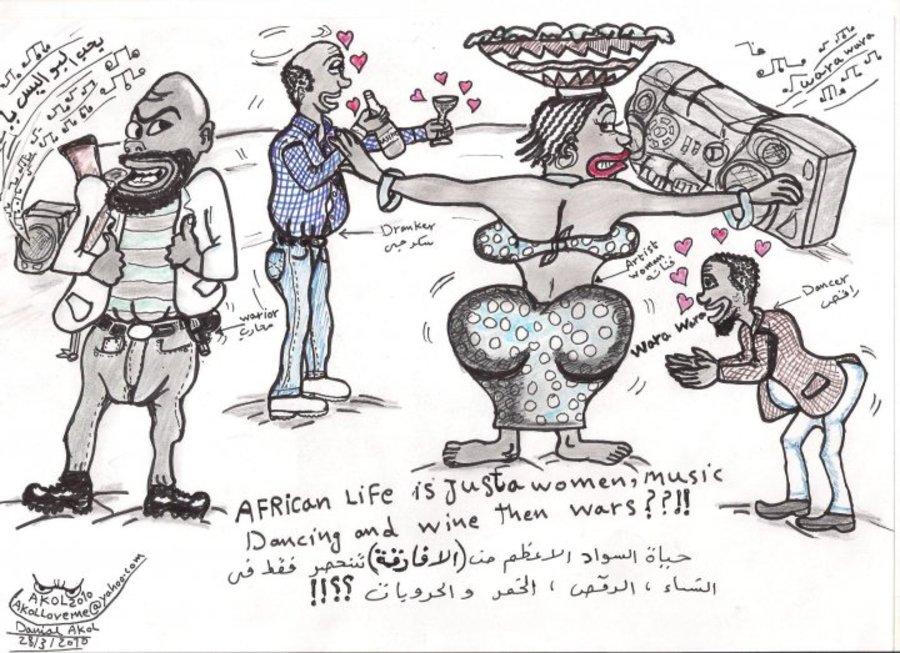 يحب البوليس يا
wara wara
Dranker
سكرجي
Artist
women
فنانه
Dancer
راقص
warior
محارب
wara wara
AFRican Life is Justa women, music
Dancing and wine then wars??!!
حياة السواد الاعظم من (الافارقة) تنحصر فقط في
النساء ، الرقص ، الخمر و الحروبات ؟؟!!
AKOL 2010
AKOLLoveme@yahoo.com
Danial Akol
28/3/2010